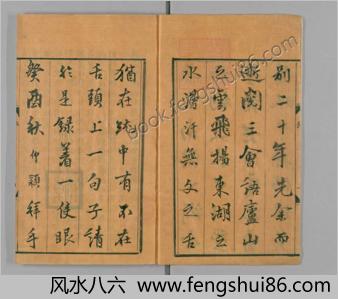 别二十年先余而
逝閱三會語廬山
之雲飛揚東湖之
水渭汗無文之舌
猶在缽中有不在
舌頭上一句子請
於是録着一隻眼
癸酉秋仲穎拜手
book.fengshui86.com
风水八六 www.fengshui86.com